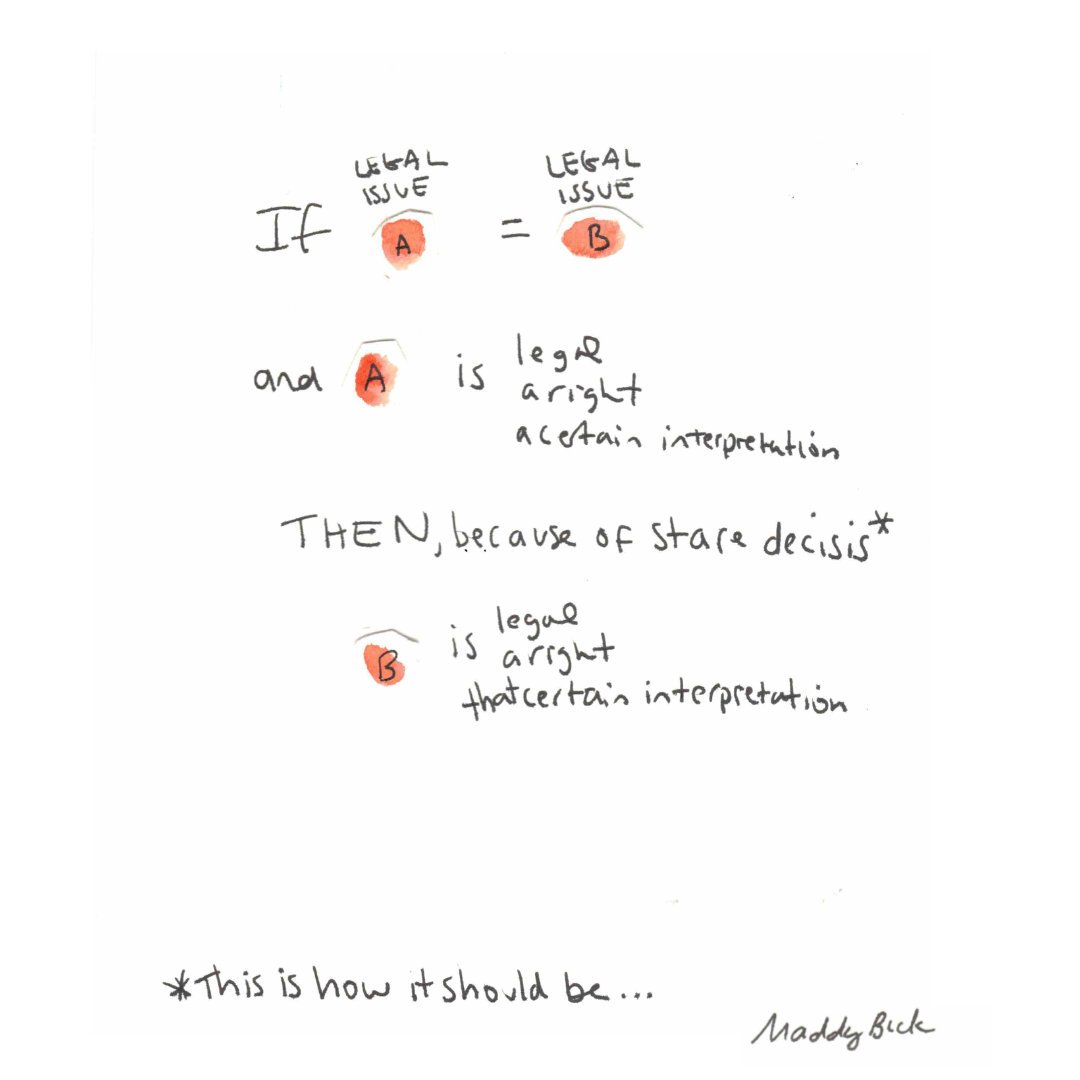 LEGAL ISSUE LEGAL ISSUE
If A = B
and A is legal
a right
a certain interpretation
THEN, because of stare decisis*
B is legal
a right
that certain interpretation
*This is how it should be...
Maddy Bick